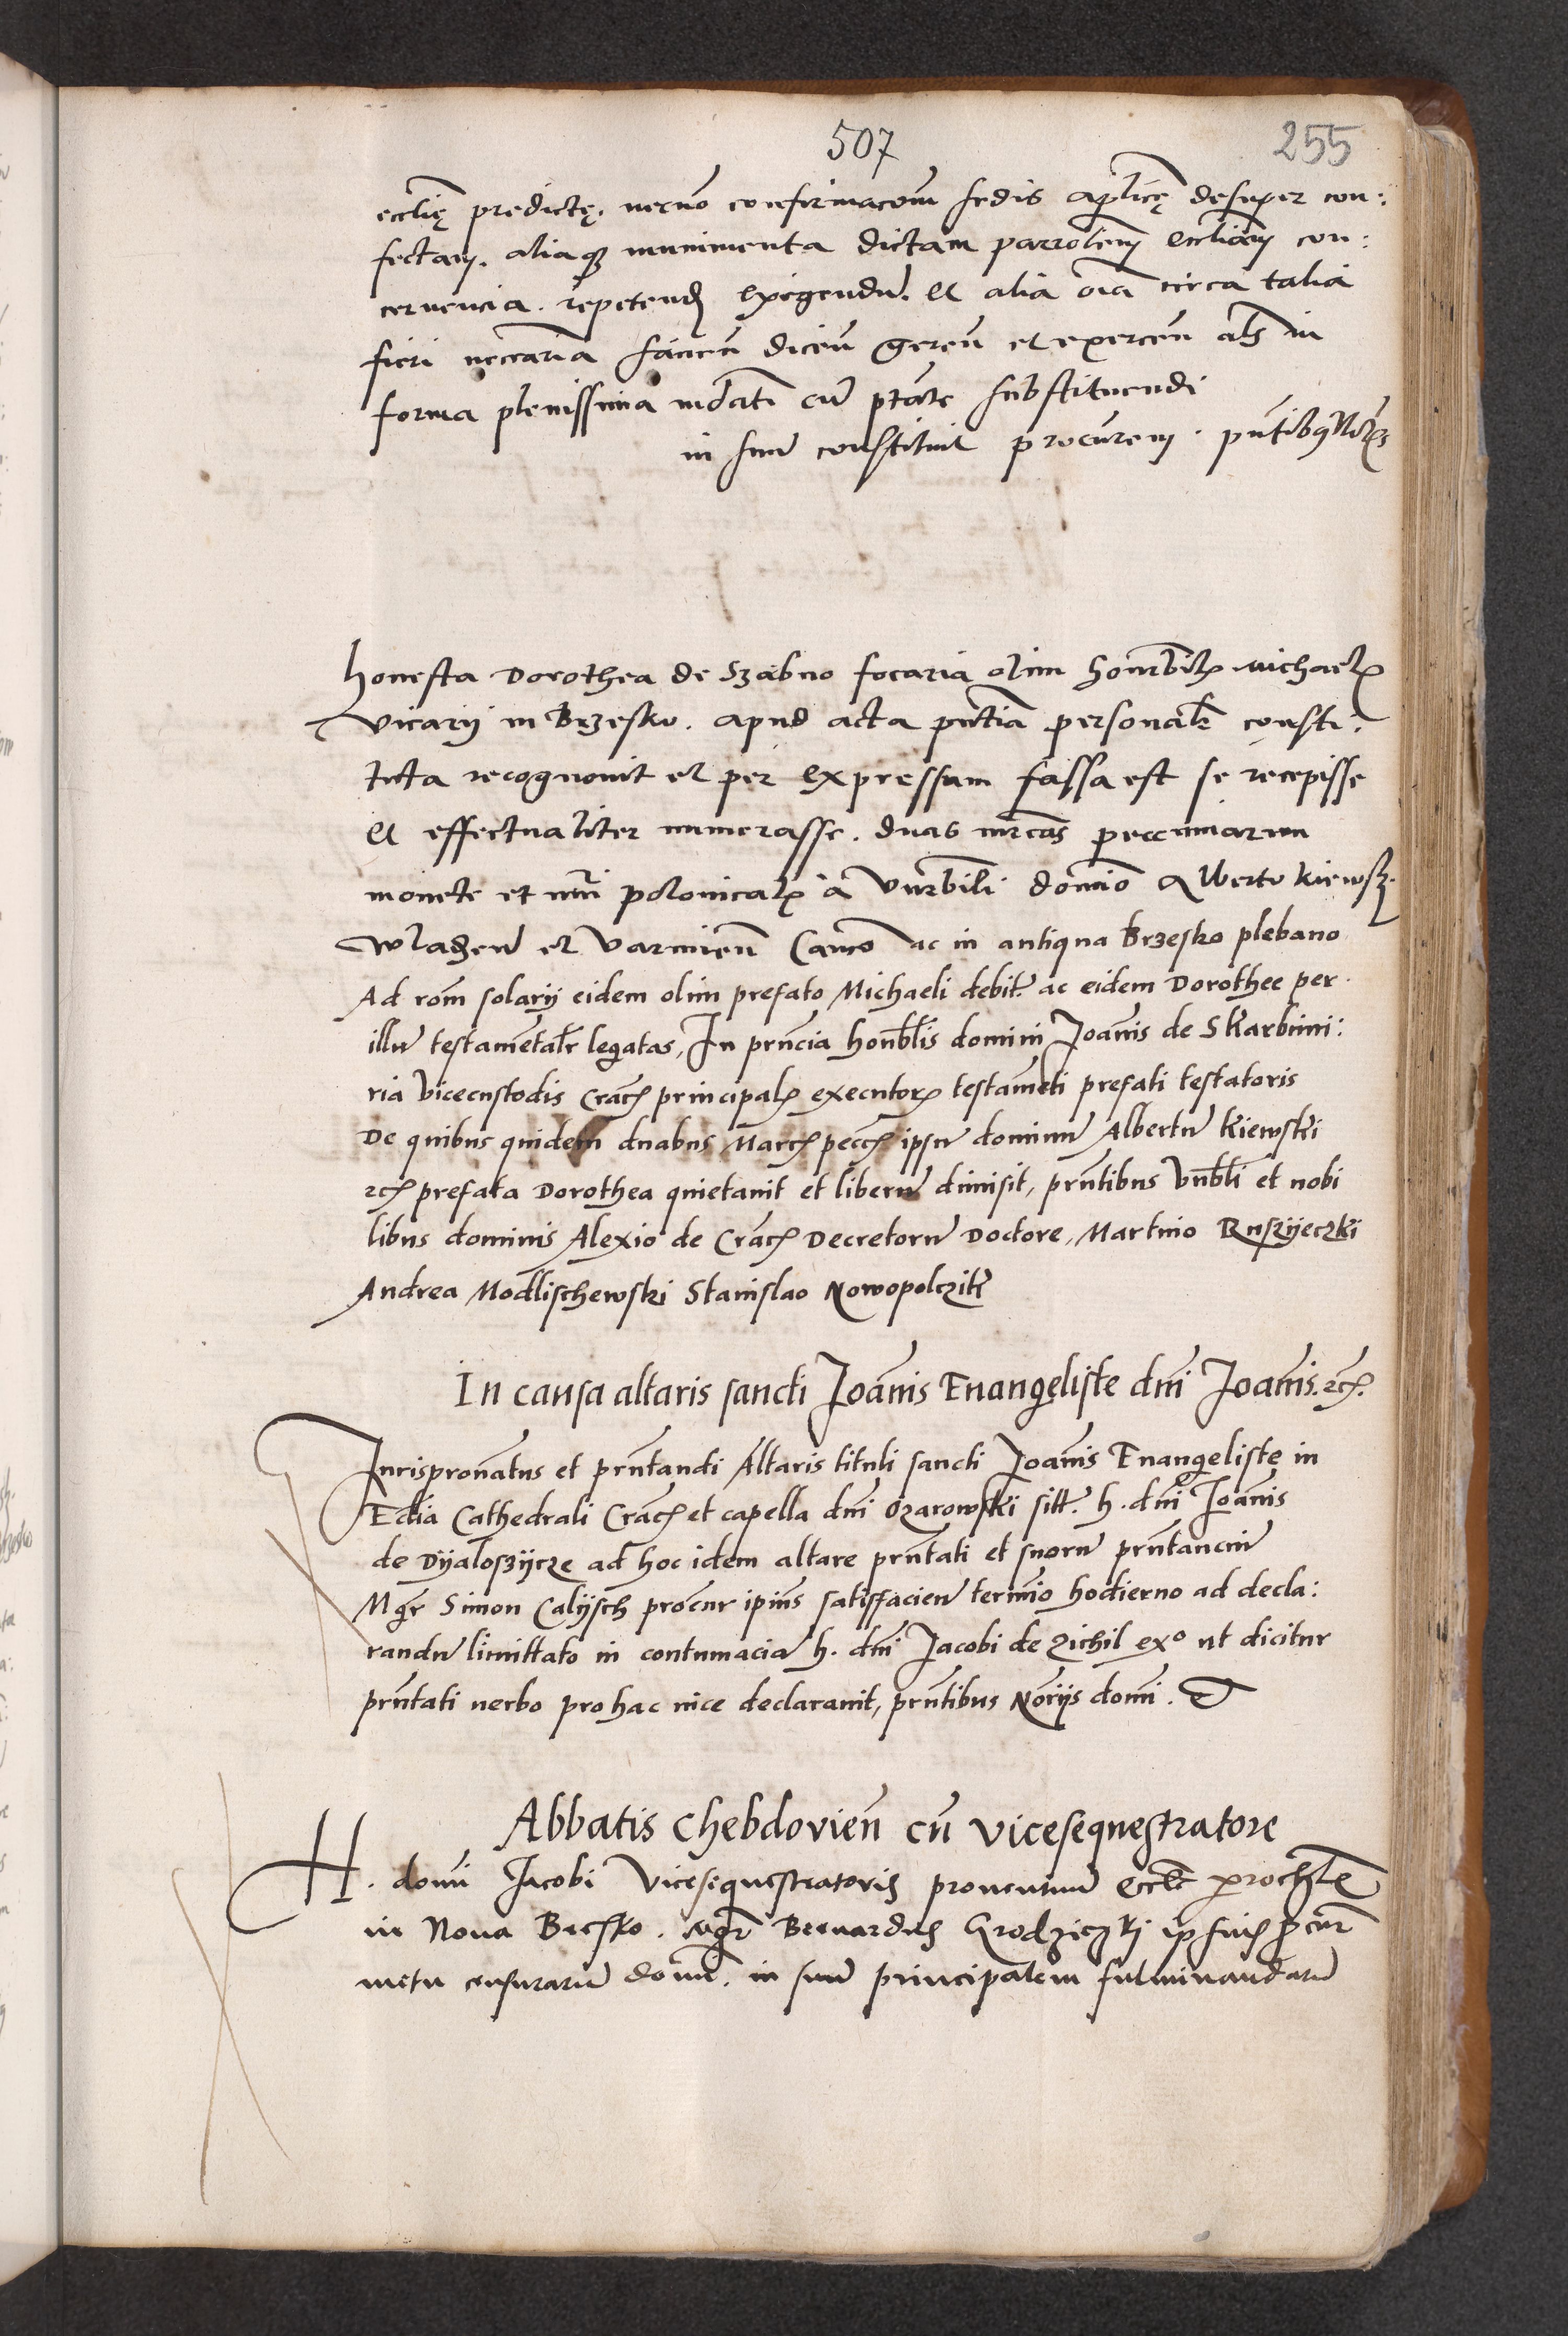 507
255
ecclię predictę. necno confirmacom sedis aplicę desuper con:
fectam. aliaqz munimenta dictam parrolem eccliam con:
cernencia. repetend exigendu. et alia oia circa talia
fieri neccaria facien dicen geren et exercen als in
forma plenissima mdati cu ptate substituendi
in suu constituit procurem. pntibq Norys
honesta Dorothea de Szabno focaria olim honorbil Michael
vicarij in Brzesko. apud acta pntia personalr consti:
tuta recognovit et per expressum fassa est se recepisse
et effectualiter numerasse. duas mrcas peccuniarum
monete et nui polonical a Vnrbili domio Alberto kiewsz.
Wladen et Varmien Canco ac in antiqua Brzesko plebano
Ad rom solarij eidem olim prefato Michaeli debit. ac eidem Dorothee per
illu testametalr legatas, In prncia honblis domini Joanis de Skarbimi:
ria vicecustodis Crac principal executor testameti prefati testatoris
De quibus quidem duabus Marc pecc ipsu dominu Albertu kiewski
etc prefata Dorothea quietauit et liberu dimisit, prntibus Vnbli et nobi
libus dominis Alexio de Crac Decretoru Doctore, Martino Ruszijeczki
Andrea Modlischewski Stanislao Nowopolczik
In causa altaris sancti Joanis Euangeliste dni Joanis. etc.
Jurispronatus et prntandi Altaris tituli sancti Joanis Euangelistę in
Ecclia Cathedrali Crac et capella dni Ozarowski sitt. h. dni Joanis
de Dijaloszijcze ad hoc idem altare prntati et suoru prntanciu
Mgr Simon Calijsch procur ipius satisfacien termio hodierno ad decla:
randu limittato in contumacia h. dni Jacobi de zichil exo ut dicitur
prntati uerbo pro hac uice declarauit, prntibus Norijs domi.
Abbatis Chebdovien cu vicesequestratore
H. domi Jacobi Vicesequestratoris prouentuum Eccle parochle
in Noua Bresko. Mgr Bernardus Grodziczkj ipsius pcur
metu censuraru domi. in suu principalem fulminandaru